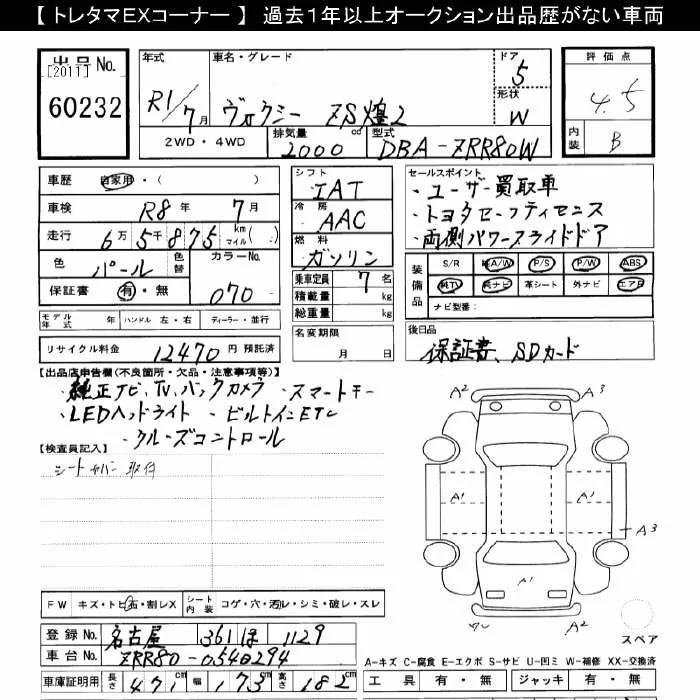 【 トレタマEXコーナー 】 過去1年以上オークション出品歴がない車両
出品 No.
[2011]
60232
年式
R1/7月
車名・グレード
ヴォクシー ZS煌2
ドア
5
形状
W
2WD・4WD
排気量
2000 cc
型式
DBA-ZRR80W
評価点
4.5
内装
B
車歴
自家用・( )
車検
R8年 7月
走行
6万5千875 km マイル( )
色
パール
色替
カラーNo.
070
保証書
有・無
モデル年式 年
ハンドル 左・右
ディーラー・並行
リサイクル料金
12470 円 預託済
シフト
IAT
冷房
AAC
燃料
ガソリン
乗車定員 7 名
積載量 kg
総重量 kg
名変期限
月 日
セールスポイント
・ユーザー買取車
・トヨタセーフティセンス
・両側パワースライドドア
装備品
S/R 純A/W P/S P/W ABS
純TV 純ナビ 革シート 外ナビ エアB
ナビ型番:
後日品
保証書、SDカード
【出品店申告欄(不良箇所・欠品・注意事項等)】
・純正ナビ、TV、バックカメラ ・スマートキー
・LEDヘッドライト ・ビルトインETC
・クルーズコントロール
【検査員記入】
シートカバー取付
A2
A3
A1
A1
A3
A1
A2
スペア
FW
キズ・トビ石・割レX
シート内装
コゲ・穴・汚レ・シミ・破レ・スレ
登録 No.
名古屋 361 ほ 1129
車台 No.
ZRR80-0540294
車庫証明用
長さ 471
幅 173
高さ 182
A-キズ C-腐食 E-エクボ S-サビ U-凹ミ W-補修 XX-交換済
工具 有・無
ジャッキ 有・無